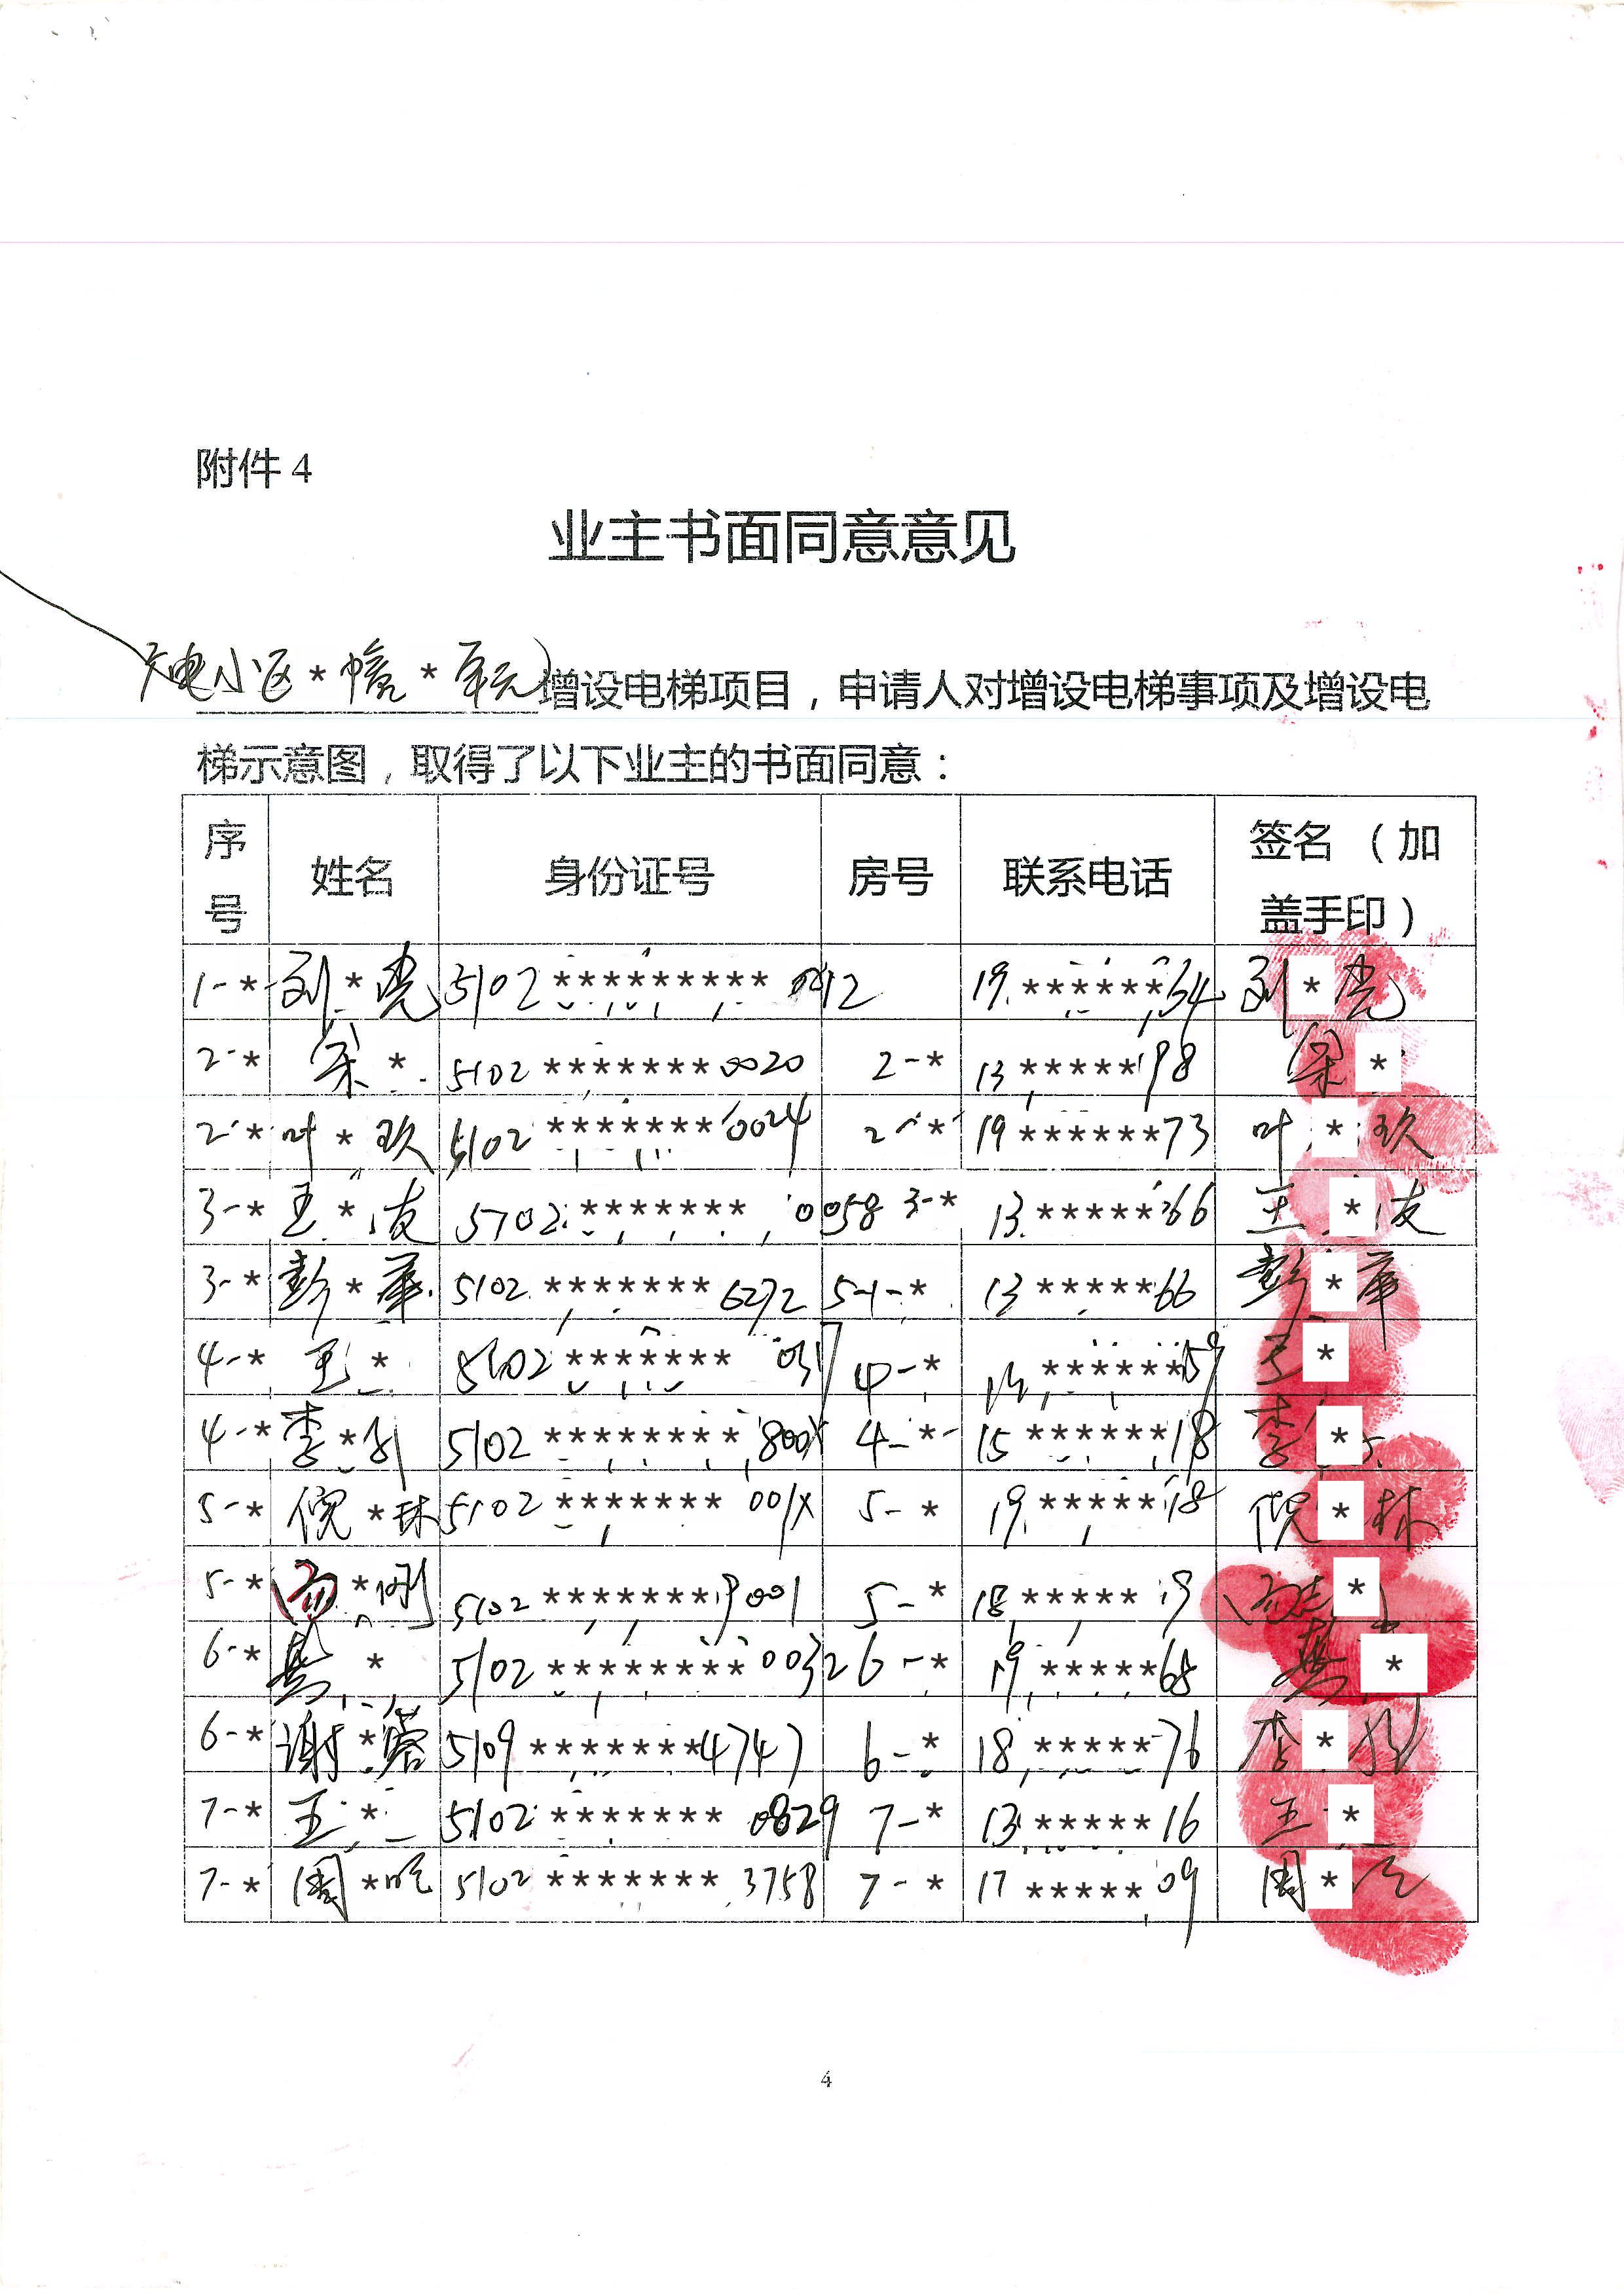 附件 4
业主书面同意意见
电小区 * 幢 * 单元 增设电梯项目，申请人对增设电梯事项及增设电
梯示意图，取得了以下业主的书面同意：
序号 姓名 身份证号 房号 联系电话 签名（加盖手印）
1-* 刘*亮 5102*********0012 19.******54 刘*亮
2-* 宋* 5102*******0020 2-* 13*****98 宋*
2-* 叶*玖 5102*******0024 2-* 19******73 叶*玖
3-* 王*友 5102*******0058 3-* 13*****66 王*友
3-* 彭*华 5102*******6272 5-1-* 13*****66 彭*华
4-* 王* 5102******* 4-* ******59 王*
4-* 李* 5102********800X 4-* 15******18 李*
5-* 倪*林 5102*******001X 5-* 19*****18 倪*林
5-* *刚 5102*******9001 5-* 18*****19 *
6-* * 5102********0032 6-* 19*****68 *
6-* 谢*蓉 5109*******4747 6-* 18*****76 李*
7-* 王* 5102*******0829 7-* 13*****16 王*
7-* 周* 5102*******3758 7-* 17*****09 周*
4